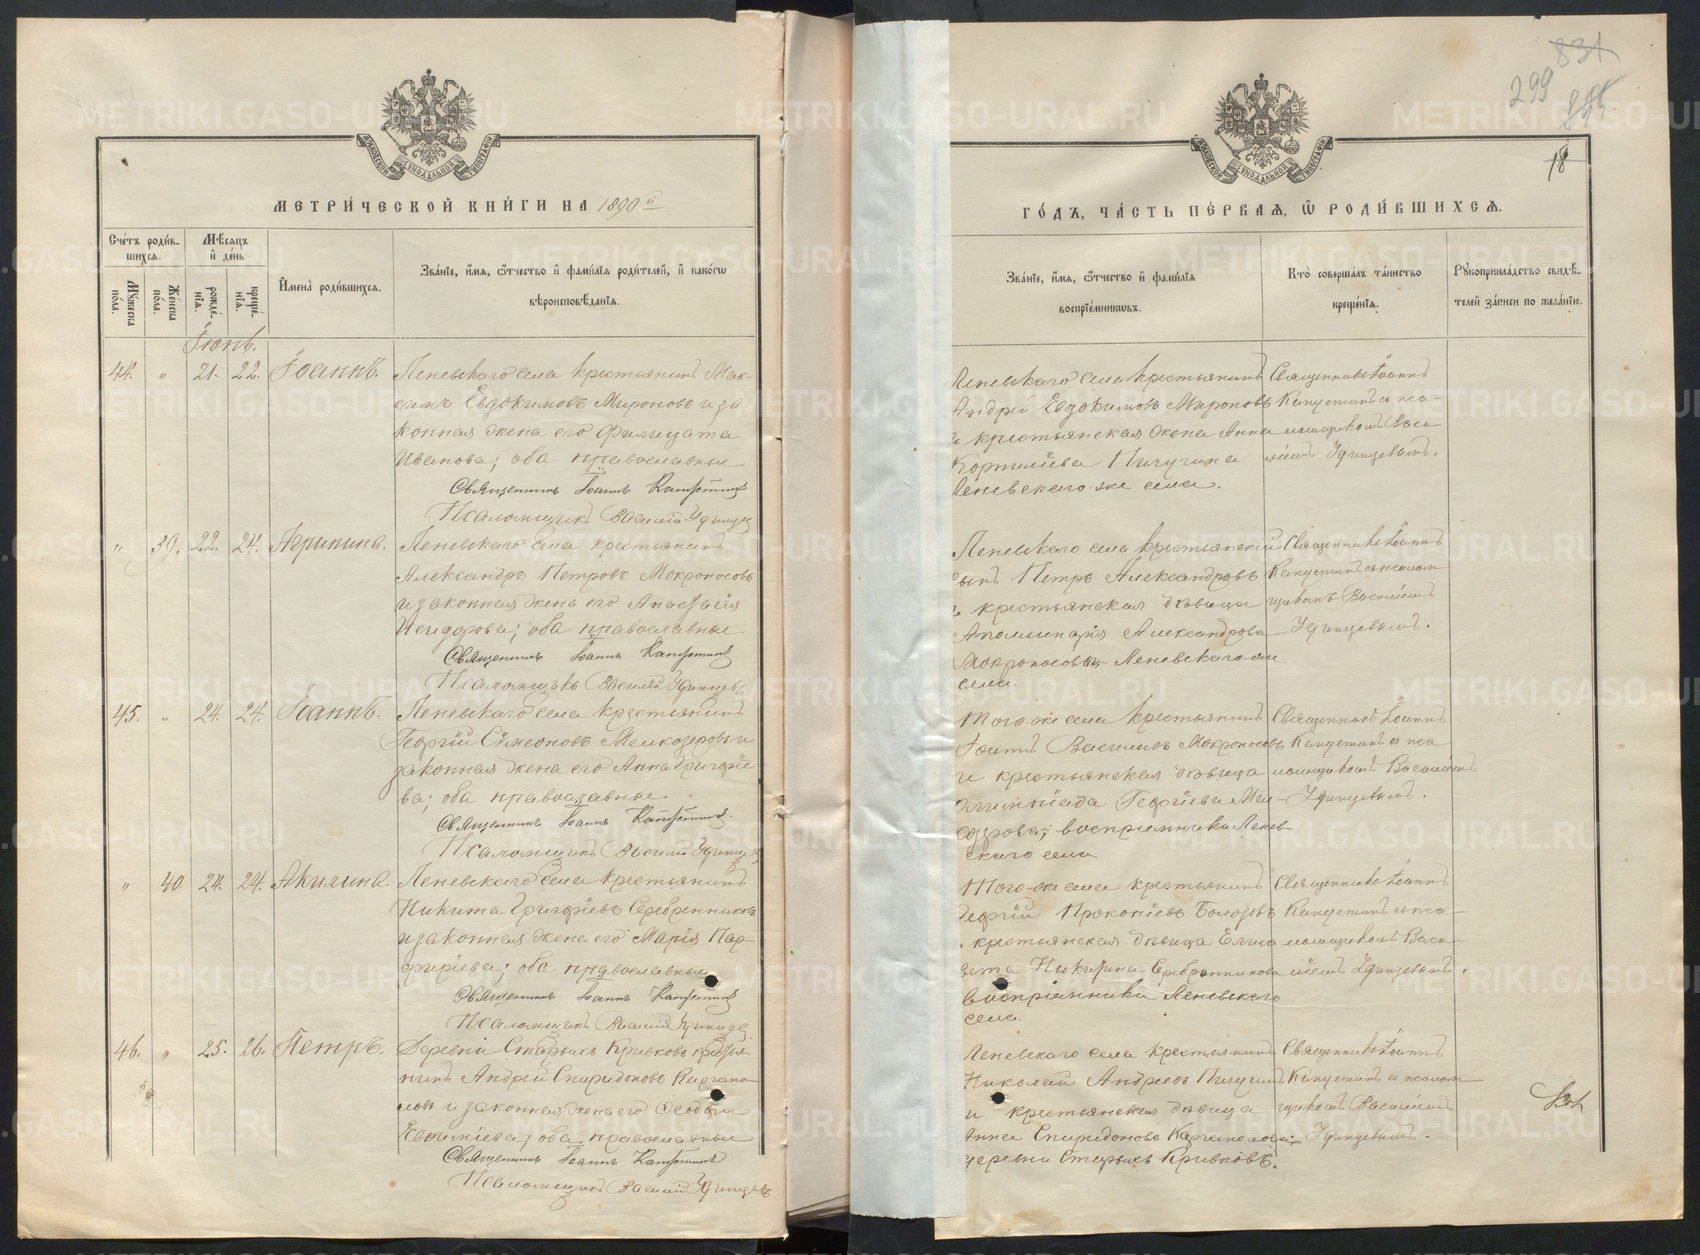 МЕТРИ́ЧЕСКОЙ КНИ́ГИ НА 1890й
Сче́тъ роди́вшихся.
Мѣ́сяцъ и де́нь
Имена̀ роди́вшихся.
Зва́нїе, и́мя, ѻ҆́тчество и҆ фами́лїя роди́телей, и҆ како́гѡ
вѣроисповѣ́данїя.
Му́жеска по́ла.
Же́нска по́ла.
рожде́нїя.
креще́нїя.
Іюнь.
44. " 21. 22. Іоаннъ. Леневскаго села крестьянинъ Мак-
симъ Евдокимовъ Мироновъ и за-
конная жена его Филицата
Иванова; оба православные
Священникъ Іоаннъ Капустинъ
Псаломщикъ Василій Удинцевъ
" 39. 22. 24. Агрипина. Леневскаго села крестьянинъ
Александръ Петровъ Мокроносовъ
и законная жена его Анастасія
Исидорова; оба православные
Священникъ Іоаннъ Капустинъ
Псаломщикъ Василій Удинцевъ
45. " 24. 24. Іоаннъ. Леневскаго села крестьянинъ
Георгій Симеоновъ Мелкозеровъ и
законная жена его Анна Григоріе-
ва; оба православные
Священникъ Іоаннъ Капустинъ.
Псаломщикъ Василій Удинцевъ
" 40 24. 24. Акилина. Леневскаго села крестьянинъ
Никита Григоріевъ Серебренниковъ
и законная жена его Марія Пар-
фиріева; оба православные
Священникъ Іоаннъ Капустинъ
Псаломщикъ Василій Удинцев
46. " 25. 26. Петръ. Деревни Старыхъ Кривковъ крестья-
нинъ Андрей Спиридоновъ Каргапо-
ловъ и законная жена его Ѳеодосія
Евѳиміева; оба православные
Священникъ Іоаннъ Капустинъ
Псаломщикъ Василій Удинцевъ
831
299
18
ГО́ДЪ, ЧА́СТЬ ПЕ́РВАЯ, Ѡ҆ РОДИ́ВШИХСЯ.
Зва́нїе, и́мя, ѻ҆́тчество и҆ фами́лїя
воспрїе́мникѡвъ.
Кто̀ соверша́лъ та́инство
креще́нїя.
Рукоприкла́дство свидѣ́-
телей за́писи по жела́нїю.
Леневскаго села крестьянинъ
Андрей Евдокимовъ Мироновъ
и крестьянская жена Анна
Корнилиева Пичугина
Леневскаго-же села.
Священникъ Іоаннъ
Капустинъ съ пса-
ломщикомъ Васи-
ліемъ Удинцевымъ.
Леневскаго села крестьянскій
сынъ Петръ Александровъ
и крестьянская дѣвица
Аполлинарія Александрова
Мокроносовы Леневскаго-же
села.
Священникъ Іоаннъ
Капустинъ съ псалом-
щикомъ Василіемъ
Удинцевымъ.
Того-же села крестьянинъ
Іоаннъ Василиевъ Мокроносовъ
и крестьянская дѣвица
Олимпіада Георгіева Мел-
козерова; воспріемники Ленев-
скаго села
Священникъ Іоаннъ
Капустинъ съ пса-
ломщикомъ Василіемъ
Удинцевымъ.
Того-же села крестьянинъ
Георгій Прокопіевъ
и крестьянская дѣвица Елиса-
вета Никитина Серебренникова
воспріемники Леневскаго
села.
Священникъ Іоаннъ
Капустинъ съ пса-
ломщикомъ Васи-
ліемъ Удинцевымъ.
Леневскаго села крестьянинъ
Николай Андреевъ Пичугинъ
и крестьянская дѣвица
Анна Спиридонова Каргаполова
деревни Старыхъ Кривковъ.
Священникъ Іоаннъ
Капустинъ съ псалом-
щикомъ Василіемъ
Удинцевымъ.
METRIKI.GASO-URAL.RU